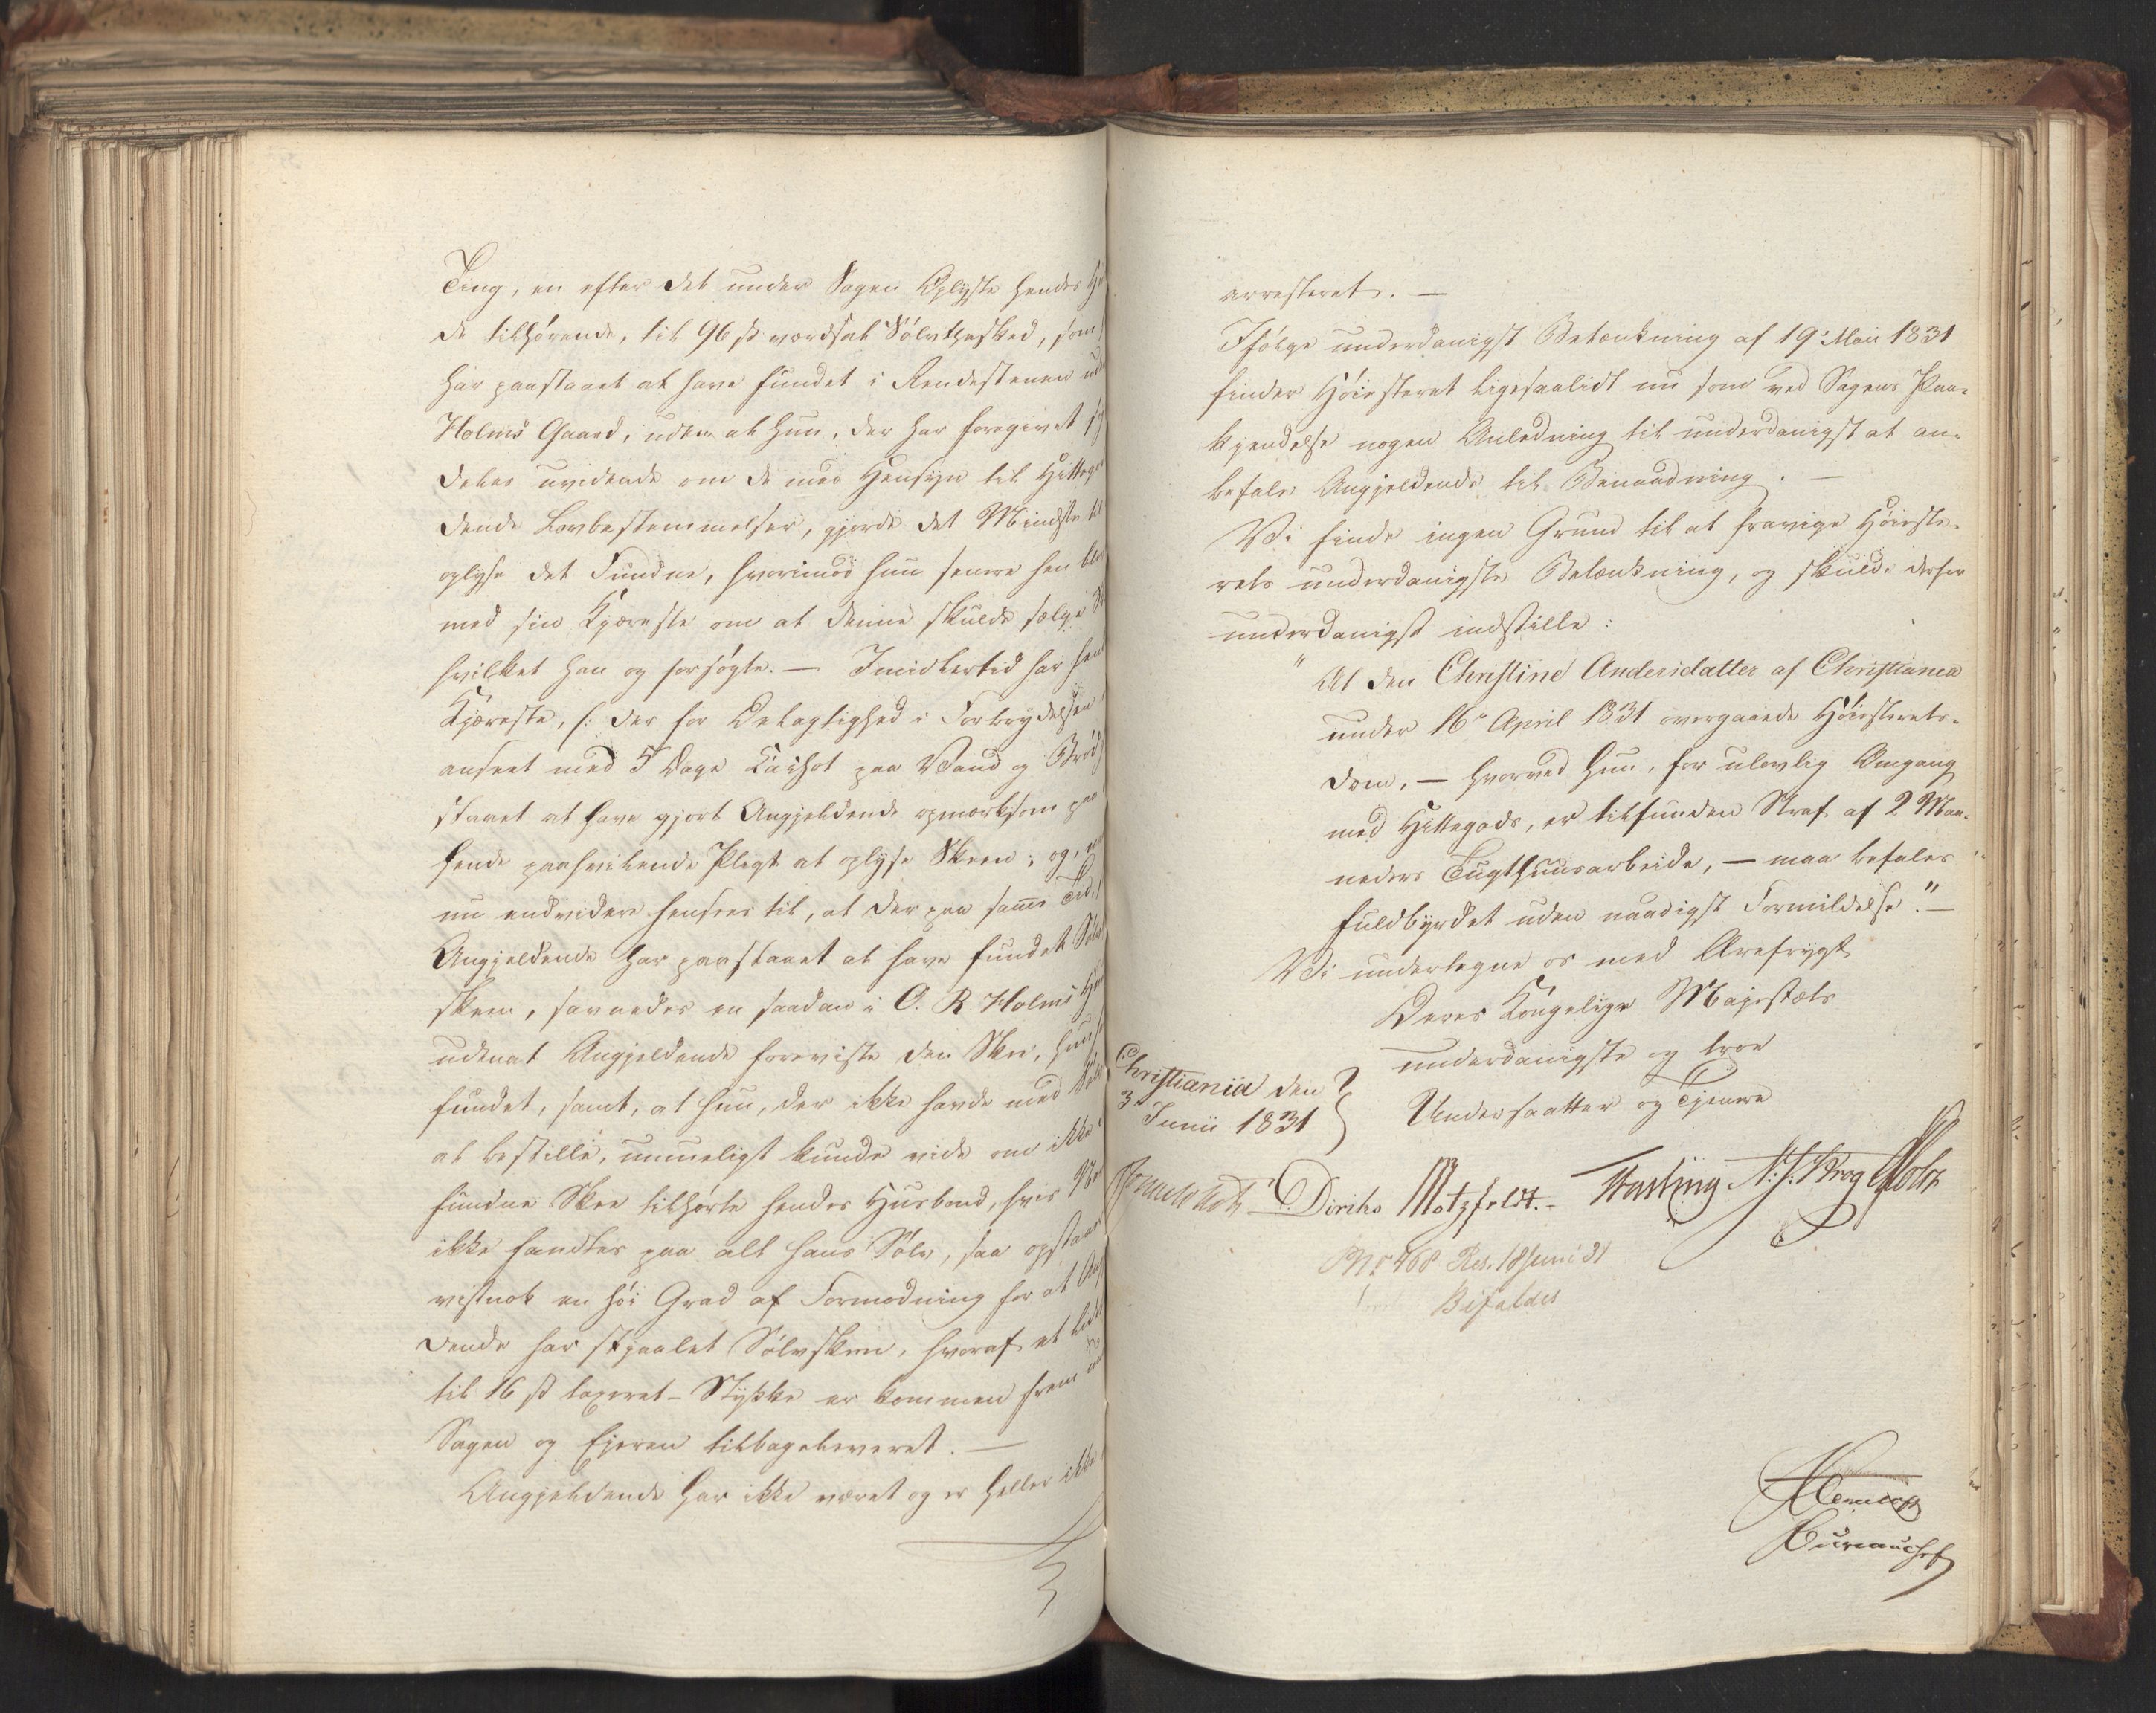 Ting, en efter det under Sagen Oplyste hendes
de tilhørende, til 96 ß værdsat Sølvtheskee, som
har paastaaet at have fundet i Rendestenen
Holms Gaard, uden at hun, der har foregivet
deles uvidende om de med Hensyn til Hittegods
dende Lovbestemmelser, gjorde det Mindste til
oplyse det Fundne, hvorimod hun senere hen blev
med sin Kjæreste om at denne skulde sælge
hvilket han og forsøgte. — Imidlertid har
Kjæreste, /: der for Delagtighed i Forbrydelsen
anseet med 5 Dage Fængsel paa Vand og Brød
staaet at have gjort Angjeldende opmærksom paa
hende paahvilende Pligt at oplyse Skeen; og,
nu endvidere henseer til, at der paa samme Tid,
Angjeldende har paastaaet at have fundet
skeen, savnedes en saadan i O. R. Holms
udenat Angjeldende foreviste den Skee, hun
fundet, samt, at hun, der ikke havde med
at bestille, umueligt kunde vide om ikke
fundne Skee tilhørte hendes Husbond, hvis
ikke fandtes paa alt hans Sølv, saa opstaaer
vistnok en høi Grad af Formodning for at
dende har stjaalet Sølvskeen, hvoraf et
til 16 ß taxeret Stykke er kommen frem
Sagen og Eieren tilbageleveret. —
Angjeldende har ikke været og er heller ikke
arresteret. —
Ifølge underdanigst Betænkning af 19 Mai 1831
finder Høiesteret ligesaalidt nu som ved Sagens Paa-
kjendelse nogen Anledning til underdanigst at an-
befale Angjeldende til Benaadning. —
Vi finde ingen Grund til at fravige Høieste-
rets underdanigste Betænkning, og skulde derfor
underdanigst indstille:
"At den Christine Andersdatter af Christiania
under 16 April 1831 overgaaede Høiesterets-
dom, — hvorved hun, for ulovlig Omgang
med Hittegods, er tilfunden Straf af 2 Maa-
neders Tugthuusarbeide, — maa befales
fuldbyrdet uden naadigst Formildelse". —
Vi undertegne os med Ærefrygt
Deres Kongelige Majestæts
underdanigste og troe
Undersaatter og Tjenere
Christiania den
3 Junii 1831
Diriks Motzfeldt. Fasting N. J. Krog Holst
No 468 Res. 18 Juni 31
Bifaldes
Bureauchef